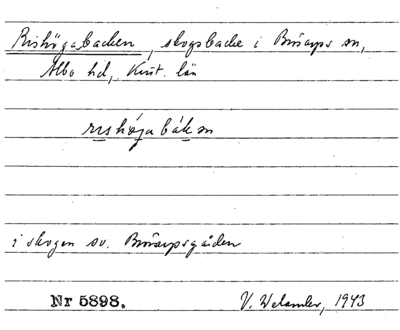 Rishögabacken, skogsbacke i Brösarps sn,
Albo hd, Krist. län
rishögabákan
i skogen sv. Brösarpsgården
Nr 5898. V. Welander, 1943